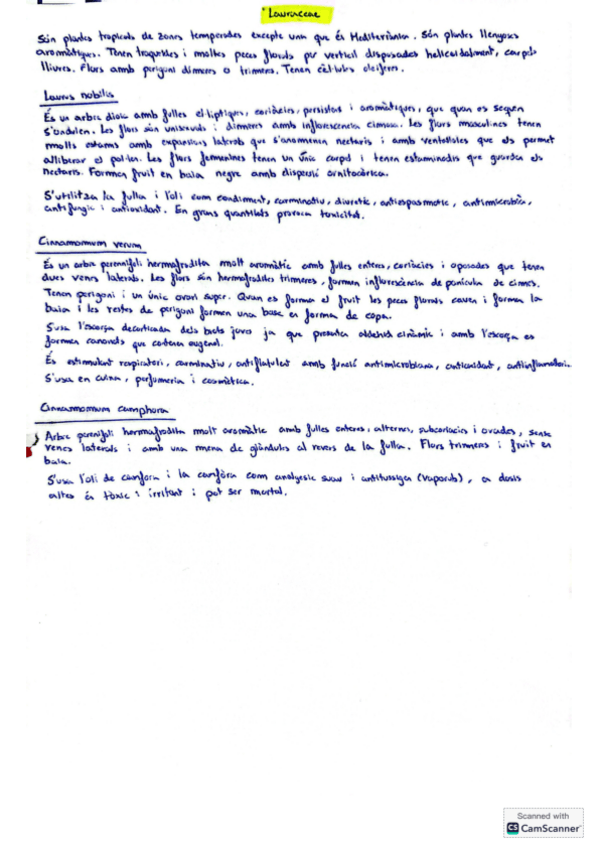 Lauraceae
Són plantes tropicals de zones temperades excepte una que és Mediterrània. Són plantes llenyoses
aromàtiques. Tenen traqueides i moltes peces florals per verticil disposades helicoidalment, carpels
lliures. Flors amb perigoni dimeres o trimeres. Tenen cèl·lules oleíferes.
Laurus nobilis
És un arbre dioic amb fulles el·líptiques, coriàcies, persistents i aromàtiques, que quan es sequen
s'ondulen. Les flors són unisexuals i dimeres amb inflorescencia cimosa. Les flors masculines tenen
molts estams amb expansions laterals que s'anomenen nectaris i amb ventalloles que els permet
alliberar el pol·len. Les flors femenines tenen un únic carpel i tenen estaminodis que guarden els
nectaris. Formen fruit en baia negre amb dispersió ornitocòrica.
S'utilitza la fulla i l'oli com condiment, carminatiu, diuretic, antiespasmotic, antimicrobià,
antifungic i antioxidant. En grans quantitats provoca toxicitat.
Cinnamomum verum
És un arbre perennifoli hermafrodita molt aromàtic amb fulles enteres, coriàcies i oposades que tenen
dues venes laterals. Les flors són hermafrodites trimeres, formen inflorescència de panicula de cimes.
Tenen perigoni i un únic ovari super. Quan es forma el fruit les peces florals cauen i formen la
baia i les restes de perigoni formen una base en forma de copa.
S'usa l'escorça decorticada dels brots joves ja que presenten aldehid cinàmic i amb l'escorça es
formen canonets que contenen eugenol.
És estimulant respiratori, carminatiu, antiflatulent amb funció antimicrobiana, antioxidant, antiinflamatori.
S'usa en cuina, perfumeria i cosmètica.
Cinnamomum camphora
Arbre perennifoli hermafrodita molt aromàtic amb fulles enteres, alternes, subcoriacies i ovades, sense
venes laterals i amb una mena de glàndules al revers de la fulla. Flors trimeres i fruit en
baia.
S'usa l'oli de camfora i la camfora com analgesic suau i antitussigen (Vaporub), a dosis
altes és tòxic i irritant i pot ser mortal.
Scanned with
CS CamScanner